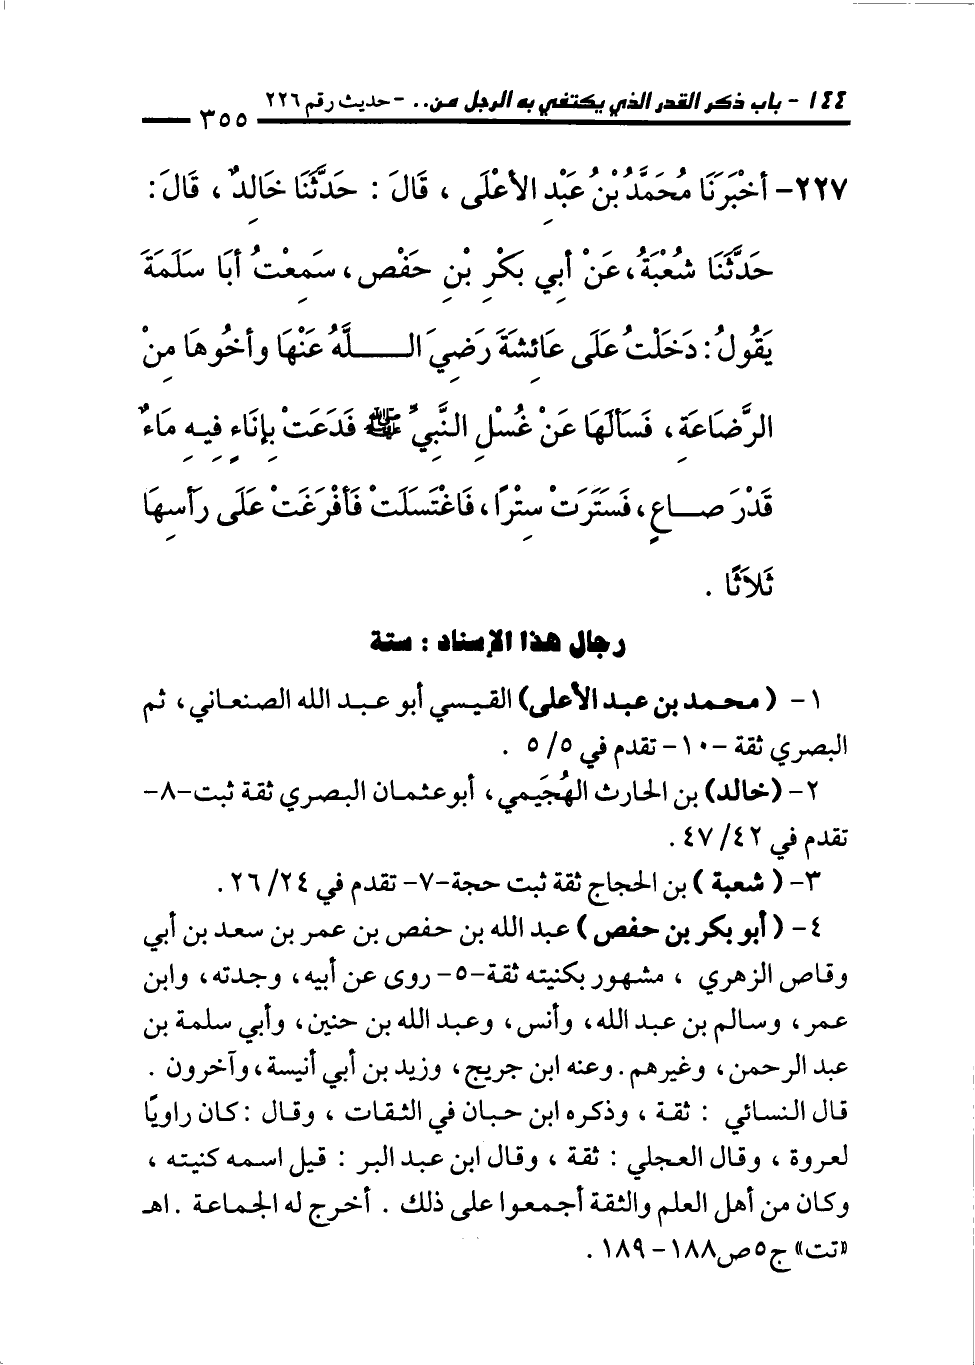 ١٤٤ - باب ذكر القدر الذي يكتفي به الرجل من.. - حديث رقم ٢٢٦
٣٥٥
٢٢٧- أخْبَرَنَا مُحَمَّدُ بْنُ عَبْدِ الأعْلَى ، قَالَ : حَدَّثَنَا خَالِدٌ ، قَالَ :
حَدَّثَنَا شُعْبَةُ، عَنْ أبِي بَكْرِ بْنِ حَفْصٍ، سَمِعْتُ أبَا سَلَمَةَ
يَقُولُ: دَخَلْتُ عَلَى عَائِشَةَ رَضِيَ اللَّهُ عَنْهَا وأخُوهَا مِنْ
الرَّضَاعَةِ، فَسَألَهَا عَنْ غُسْلِ النَّبِيِّ ﷺ فَدَعَتْ بِإنَاءٍ فِيهِ مَاءٌ
قَدْرَ صَاعٍ، فَسَتَرَتْ سِتْرًا، فَاغْتَسَلَتْ فَأفْرَغَتْ عَلَى رَأسِهَا
ثَلاَثًا .
رجال هذا الإسناد : ستة
١- (محمد بن عبد الأعلى) القيسي أبو عبد الله الصنعاني، ثم
البصري ثقة -١٠- تقدم في ٥/ ٥ .
٢- (خالد) بن الحارث الهُجَيمي، أبو عثمان البصري ثقة ثبت-٨-
تقدم في ٤٢/ ٤٧ .
٣- (شعبة) بن الحجاج ثقة ثبت حجة-٧- تقدم في ٢٤/ ٢٦ .
٤- (أبو بكر بن حفص) عبد الله بن حفص بن عمر بن سعد بن أبي
وقاص الزهري ، مشهور بكنيته ثقة-٥- روى عن أبيه، وجدته، وابن
عمر، وسالم بن عبد الله، وأنس، وعبد الله بن حنين، وأبي سلمة بن
عبد الرحمن، وغيرهم. وعنه ابن جريج، وزيد بن أبي أنيسة، وآخرون .
قال النسائي : ثقة ، وذكره ابن حبان في الثقات ، وقال : كان راويًا
لعروة ، وقال العجلي : ثقة ، وقال ابن عبد البر : قيل اسمه كنيته ،
وكان من أهل العلم والثقة أجمعوا على ذلك . أخرج له الجماعة . اهـ
«تت» ج٥ص١٨٨- ١٨٩ .